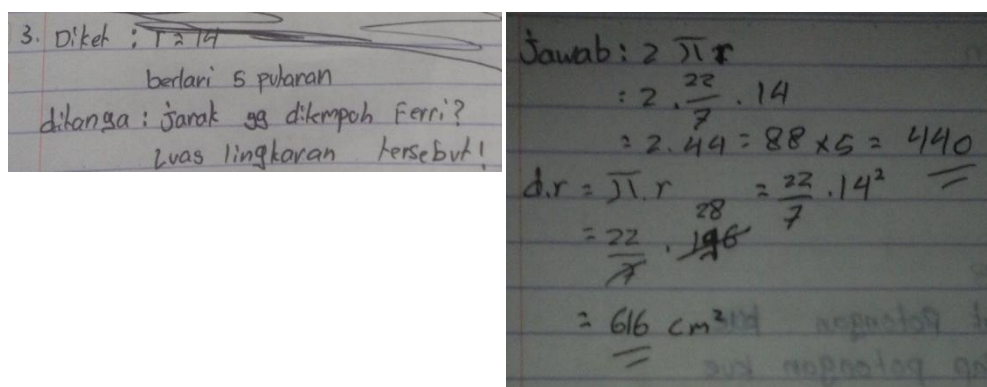 3. Diket : r = 14
berlari 5 putaran
ditanya : jarak yg ditempoh Ferri?
Luas lingkaran tersebut!
Jawab : 2 π r
= 2 . 22/7 . 14
= 2 . 44 = 88 x 5 = 440
d.r = π . r = 22/7 . 14²
= 22/7 . 196 28
= 616 cm²